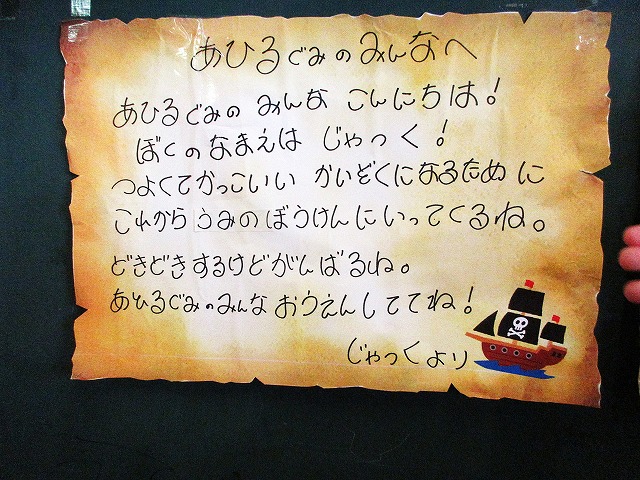 あひるぐみのみんなへ
あひるぐみの みんな こんにちは!
ぼくのなまえは じゃっく!
つよくてかっこいい かいぞくになるために
これから うみのぼうけんにいってくるね。
どきどきするけどがんばるね。
あひるぐみのみんなおうえんしててね!
じゃっくより